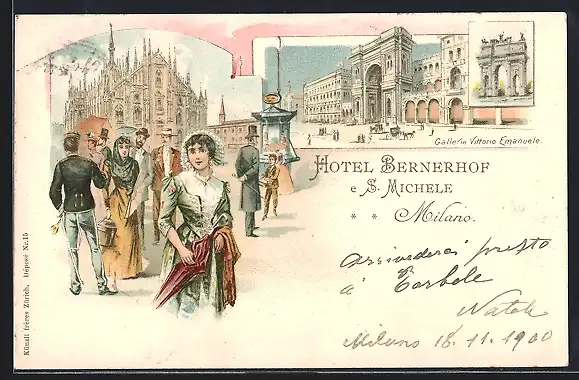 Galleria Vittorio Emanuele.
HOTEL BERNERHOF
e S. MICHELE
* * Milano.
Arrivederci presto
a Torbole
Natale
Milano 18.11.1900
Künzli frères Zürich. Déposé Nr. 15